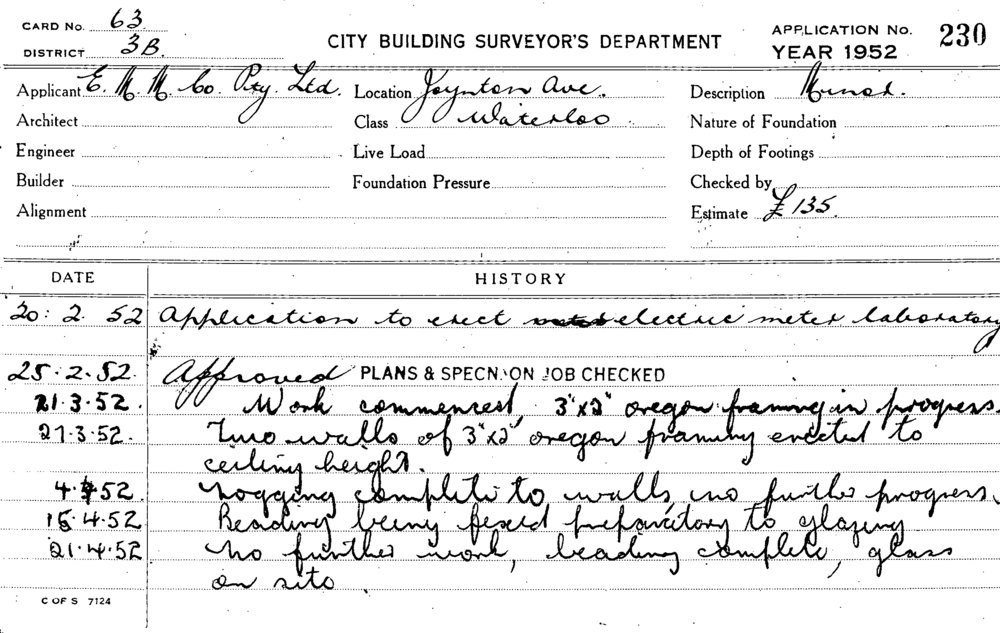 CARD No. 63
DISTRICT 3B.
CITY BUILDING SURVEYOR'S DEPARTMENT
APPLICATION No. 230
YEAR 1952
Applicant E. M. M. Co. Pty. Ltd. Location Joynton Ave. Description Minor.
Architect Class Waterloo Nature of Foundation
Engineer Live Load Depth of Footings
Builder Foundation Pressure Checked by
Alignment Estimate £135.
DATE HISTORY
20: 2. 52 Application to erect electric meter laboratory
25.2.52. Approved PLANS & SPECN. ON JOB CHECKED
21.3.52. Work commenced, 3"x2" oregon framing in progress.
27.3.52. Two walls of 3"x2" oregon framing erected to
ceiling height.
4.4.52. Nogging complete to walls, no further progress.
15.4.52 Beading being fixed preparitory to glazing
21.4.52 No further work, beading complete, glass
on site
C OF S 7124